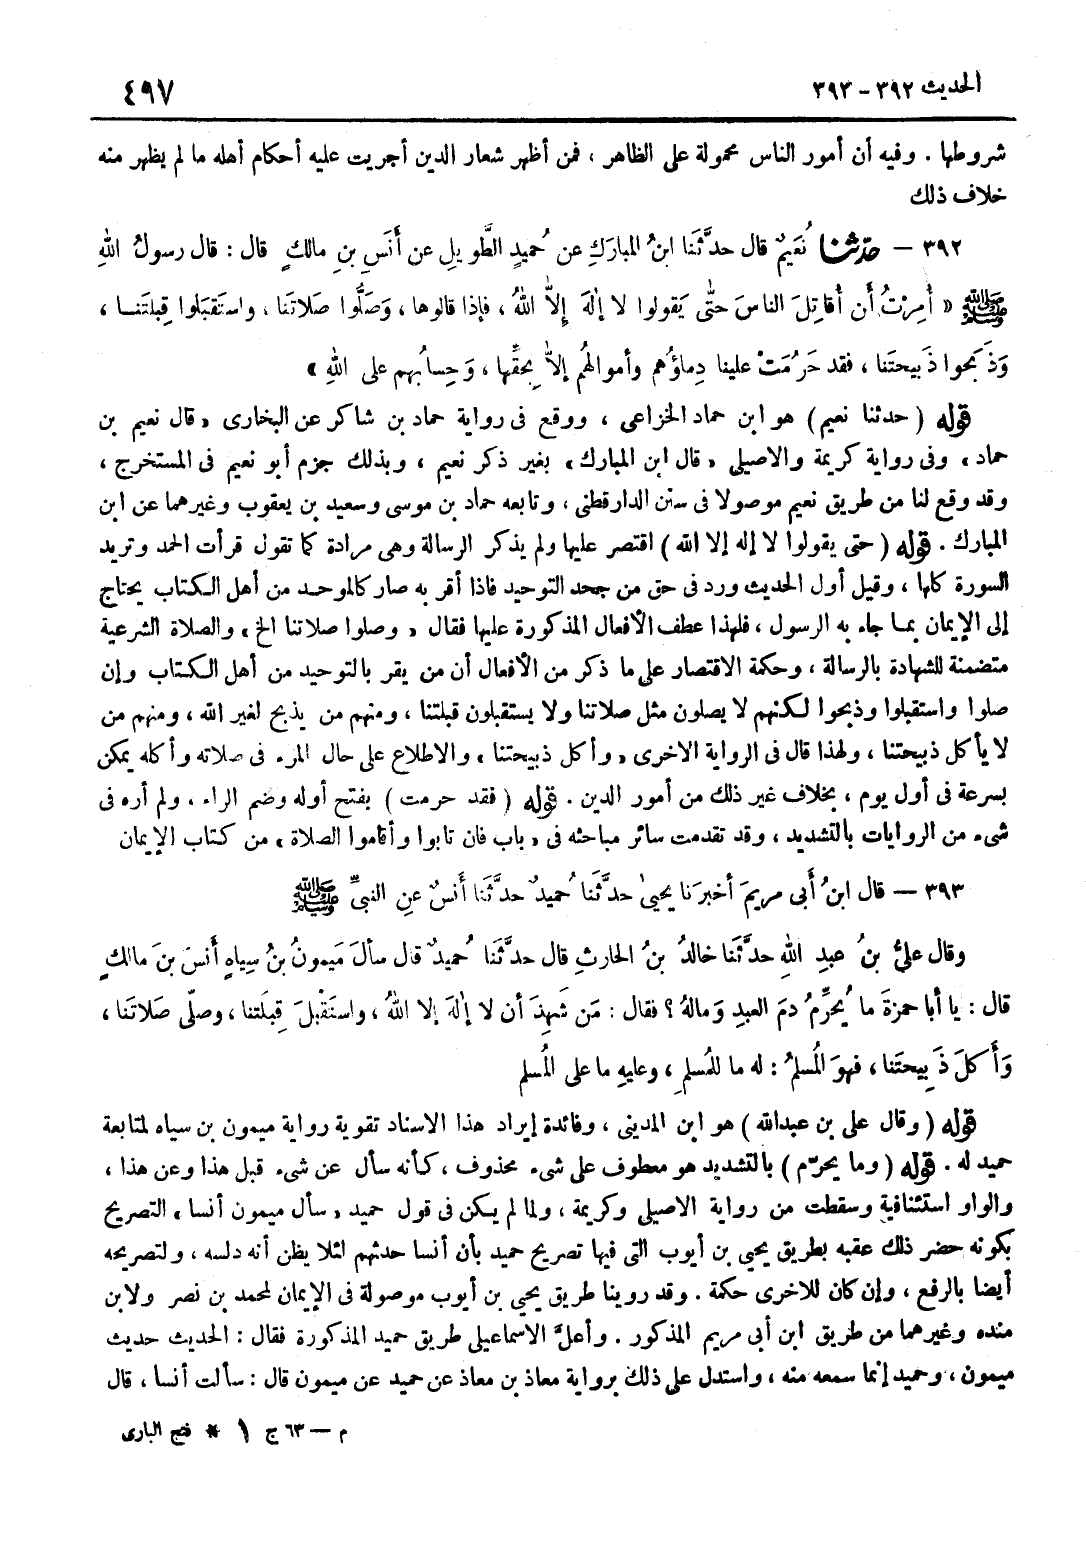 الحديث ٣٩٢ - ٣٩٣
٤٩٧
شروطها . وفيه أن أمور الناس محمولة على الظاهر ، فمن أظهر شعار الدين أجريت عليه أحكام أهله ما لم يظهر منه
خلاف ذلك
٣٩٢ — حدّثنا نُعَيمٌ قال حدَّثَنا ابنُ المبارَكِ عن حُميدٍ الطَّويلِ عن أَنَسِ بنِ مالكٍ قال : قال رسولُ اللهِ
ﷺ « أُمِرْتُ أن أُقاتِلَ الناسَ حتّٰى يَقولوا لا إلهَ إلاَّ اللهُ ، فإذا قالوها ، وَصَلُّوا صلاتَنا ، واستَقبَلوا قِبلتَنـا ،
وَذَبحوا ذَبيحتَنا ، فقد حَرُمَتْ علينا دِماؤُهم وأموالُهُم إلاّ بِحقِّها ، وَحِسابُهم على اللهِ »
قوله ( حدثنا نعيم ) هو ابن حماد الخزاعى ، ووقع فى رواية حماد بن شاكر عن البخارى « قال نعيم بن
حماد » وفى رواية كريمة والاصيلى « قال ابن المبارك » بغير ذكر نعيم ، وبذلك جزم أبو نعيم فى المستخرج ،
وقد وقع لنا من طريق نعيم موصولا فى سنن الدارقطنى ، وتابعه حماد بن موسى وسعيد بن يعقوب وغيرهما عن ابن
المبارك . قوله ( حتى يقولوا لا إله إلا الله ) اقتصر عليها ولم يذكر الرسالة وهى مرادة كما تقول قرأت الحمد وتريد
السورة كلها ، وقيل أول الحديث ورد فى حق من جحد التوحيد فاذا أقر به صار كالموحـد من أهل الكتاب يحتاج
إلى الإيمان بمـا جاء به الرسول ، فلهذا عطف الأفعال المذكورة عليها فقال « وصلوا صلاتنا الخ » والصلاة الشرعية
متضمنة للشهادة بالرسالة ، وحكمة الاقتصار على ما ذكر من الأفعال أن من يقر بالتوحيد من أهل الكتاب وإن
صلوا واستقبلوا وذبحوا لكنهم لا يصلون مثل صلاتنا ولا يستقبلون قبلتنا ، ومنهم من يذبح لغير الله ، ومنهم من
لا يأكل ذبيحتنا ، ولهذا قال فى الرواية الاخرى « وأكل ذبيحتنا » والاطلاع على حال المرء فى صلاته وأكله يمكن
بسرعة فى أول يوم ، بخلاف غير ذلك من أمور الدين . قوله ( فقد حرمت ) بفتح أوله وضم الراء ، ولم أره فى
شىء من الروايات بالتشديد ، وقد تقدمت سائر مباحثه فى « باب فان تابوا وأقاموا الصلاة » من كتاب الإيمان
٣٩٣ — قال ابنُ أبى مريمَ أخبرَنا يحيىٰ حدَّثَنا حُميدٌ حدَّثَنا أَنسٌ عنِ النبىِّ ﷺ
وقال علىُّ بنُ عبدِ اللهِ حدَّثَنا خالدُ بنُ الحارثِ قال حدَّثَنا حُميدٌ قال سألَ مَيمونُ بنُ سِياهٍ أَنسَ بنَ مالكٍ
قال : يا أبا حمزةَ ما يُحرِّمُ دمَ العبدِ وَمالهُ ؟ فقال : مَن شَهِدَ أن لا إلهَ إلا اللهُ ، واستَقْبلَ قِبلَتنا ، وصلّى صلاتَنا ،
وَأَكلَ ذَبيحتَنا ، فهوَ المُسلمُ : له ما للمُسلمِ ، وعليهِ ما على المُسلم
قوله ( وقال على بن عبدالله ) هو ابن المدينى ، وفائدة إيراد هذا الاسناد تقوية رواية ميمون بن سياه لمتابعة
حميد له . قوله ( وما يحرّم ) بالتشديد هو معطوف على شىء محذوف ، كأنه سأل عن شىء قبل هذا وعن هذا ،
والواو استئنافية وسقطت من رواية الاصيلى وكريمة ، ولما لم يكن فى قول حميد « سأل ميمون أنسا » التصريح
بكونه حضر ذلك عقبه بطريق يحيى بن أيوب التى فيها تصريح حميد بأن أنسا حدثهم لئلا يظن أنه دلسه ، ولتصريحه
أيضا بالرفع ، وإن كان للاخرى حكمة . وقد روينا طريق يحيى بن أيوب موصولة فى الإيمان لمحمد بن نصر ولابن
منده وغيرهما من طريق ابن أبى مريم المذكور . وأعلَّ الاسماعيلى طريق حميد المذكورة فقال : الحديث حديث
ميمون ، وحميد إنما سمعه منه ، واستدل على ذلك برواية معاذ بن معاذ عن حميد عن ميمون قال : سألت أنسا ، قال
م — ٦٣ ج ١ * فتح البارى